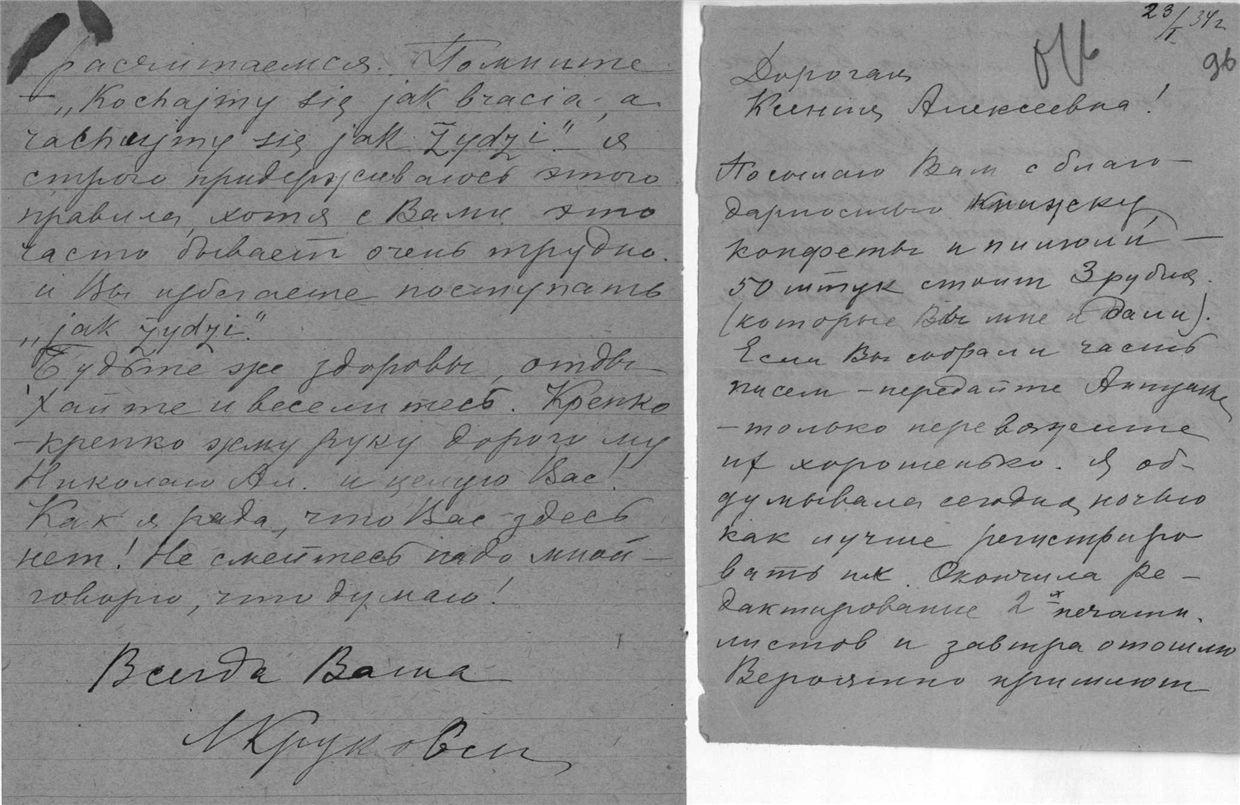 расчитаемся. Помните
– „Kochajmy się jak bracia, a
rachujmy się jak Żydzi“. я
строго придерживаюсь этого
правила, хотя с Вами это
часто бывает очень трудно.
и Вы избегаете поступать
„jak żydzi“.
Будьте же здоровы, отды-
хайте и веселитесь. Крепко
-крепко жму руку дорогому
Николаю Ал. и целую Вас!
Как я рада, что Вас здесь
нет! Не смейтесь надо мной –
говорю, что думаю!
Всегда Ваша
23/I 34 г
96
Дорогая
Ксения Алексеевна!
Посылаю Вам с благо-
дарностью книжку,
конфеты и пилюли –
50 штук стоит 3 рубля.
(которые Вы мне и дали).
Если Вы собрали часть
писем – передайте Аннушке
– только перевяжите
их хорошенько. Я об-
думывала сегодня ночью
как лучше регистриро
вать их. Окончила ре-
дактирование 2х печатн.
листов и завтра отошлю
Вероятно пришлют